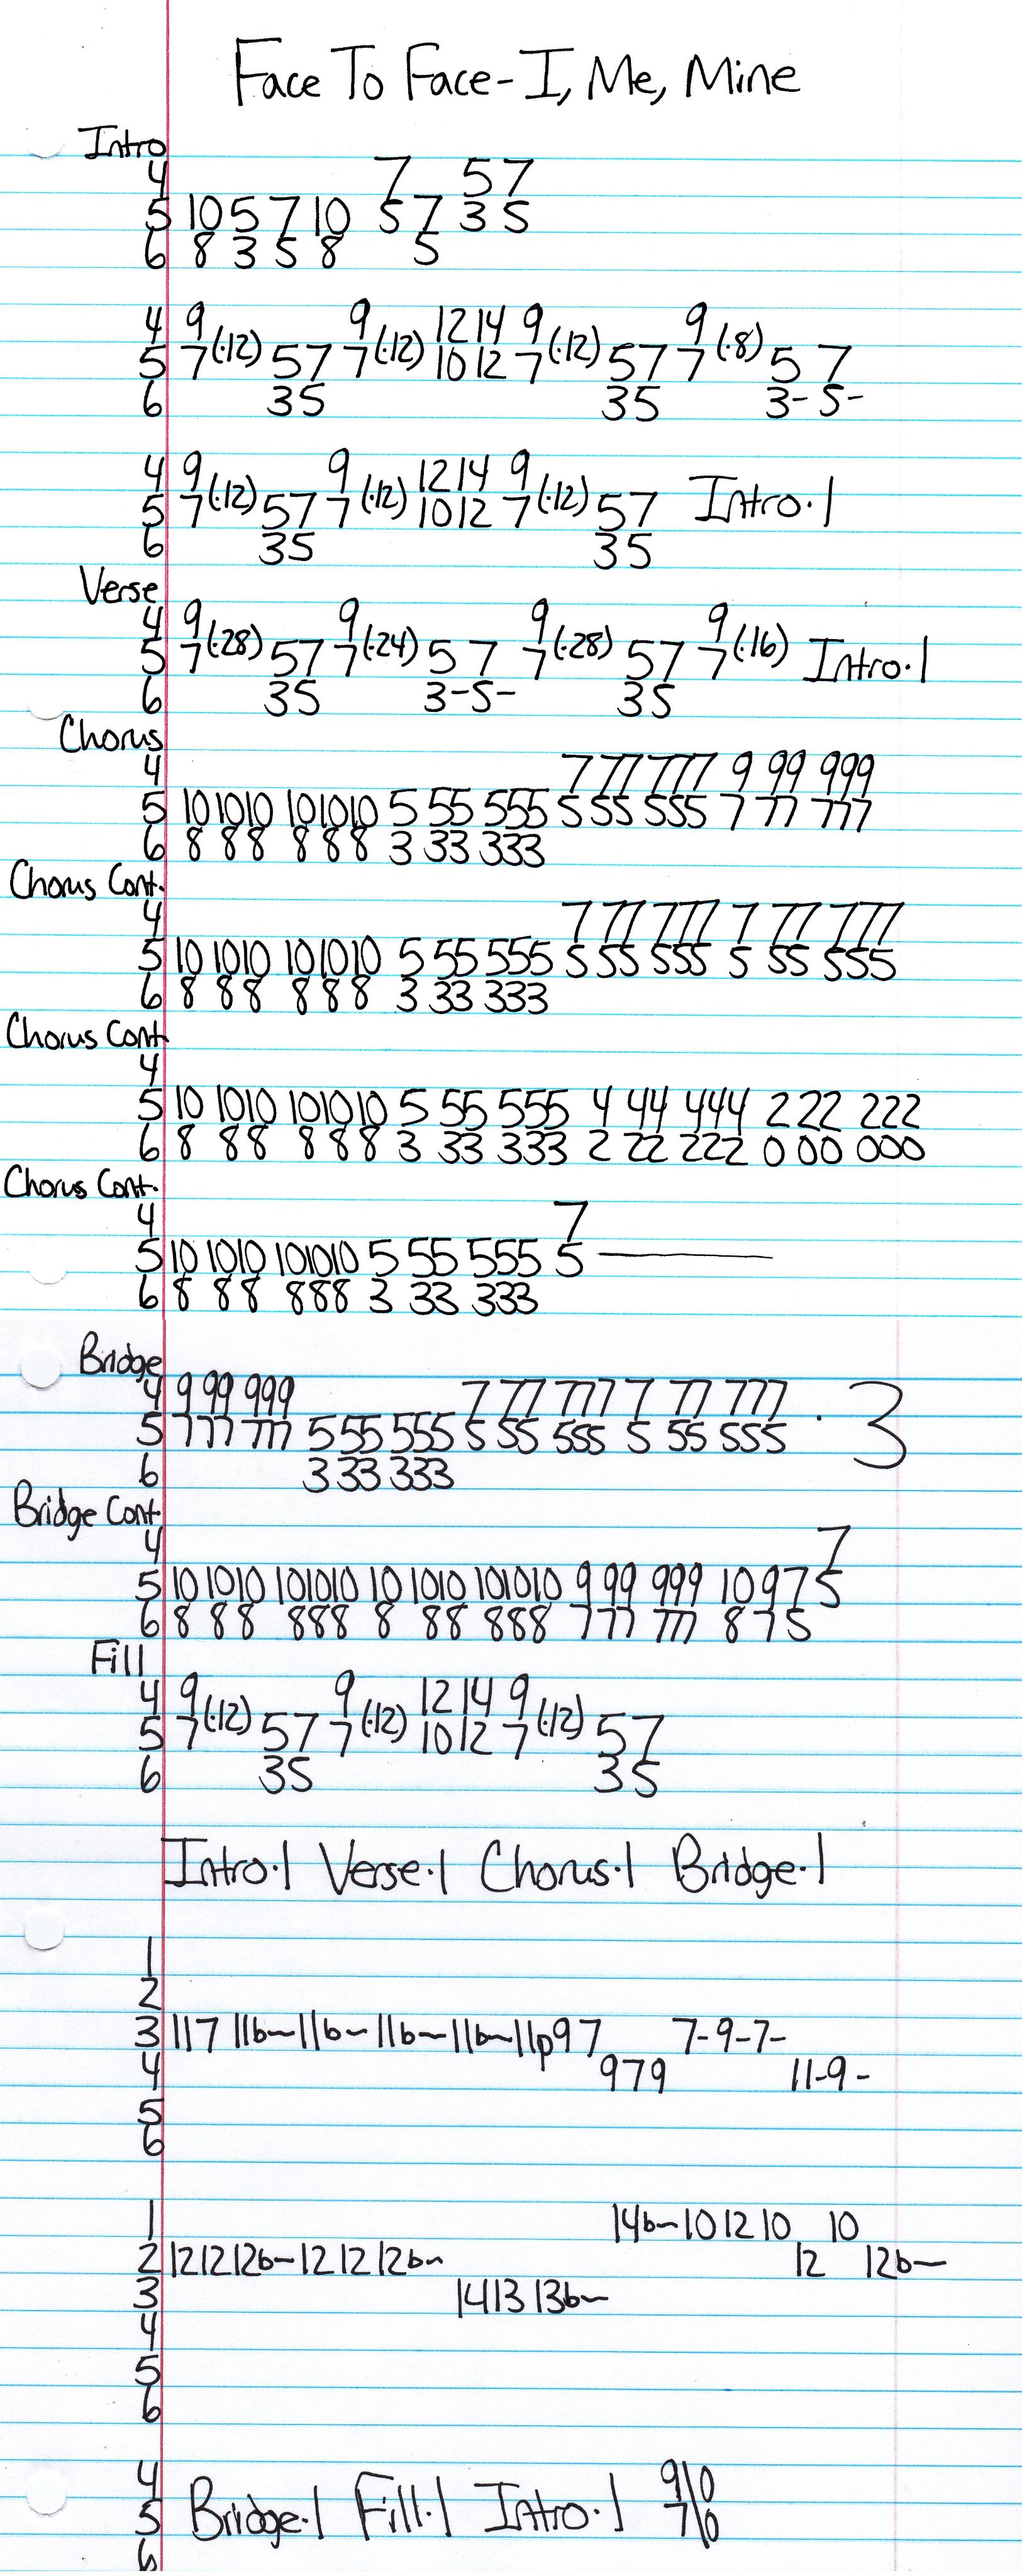 Face To Face - I, Me, Mine
Intro
4 7 5 7
5 10 5 7 10 5 7 3 5
6 8 3 5 8 5
4 9 9 12 14 9 9
5 7 (·12) 5 7 7 (·12) 10 12 7 (·12) 5 7 7 (·8) 5 7
6 3 5 3 5 3- 5-
4 9 9 12 14 9
5 7 (·12) 5 7 7 (·12) 10 12 7 (·12) 5 7 Intro·1
6 3 5 3 5
Verse
4 9 9 9 9
5 7 (·28) 5 7 7 (·24) 5 7 7 (·28) 5 7 7 (·16) Intro·1
6 3 5 3-5- 3 5
Chorus
4 7 77 777 9 99 999
5 10 1010 101010 5 55 555 5 55 555 7 77 777
6 8 88 888 3 33 333
Chorus Cont.
4 7 77 777 7 77 777
5 10 1010 101010 5 55 555 5 55 555 5 55 555
6 8 88 888 3 33 333
Chorus Cont.
4
5 10 1010 101010 5 55 555 4 44 444 2 22 222
6 8 88 888 3 33 333 2 22 222 0 00 000
Chorus Cont.
4 7
5 10 1010 101010 5 55 555 5
6 8 88 888 3 33 333
Bridge
4 9 99 999 7 77 777 7 77 777
5 7 77 777 5 55 555 5 55 555 5 55 555 · 3
6 3 33 333
Bridge Cont.
4 7
5 10 1010 101010 10 1010 101010 9 99 999 10 9 7 5
6 8 88 888 8 88 888 7 77 777 8 7 5
Fill
4 9 9 12 14 9
5 7 (·12) 5 7 7 (·12) 10 12 7 (·12) 5 7
6 3 5 3 5
Intro·1 Verse·1 Chorus·1 Bridge·1
1
2
3 11 7 11b~ 11b~ 11b~ 11b~ 11p9 7 7-9-7-
4 9 7 9 11-9-
5
6
1 14b~ 10 12 10 10
2 12 12 12b~ 12 12 12b~ 12 12b~
3 14 13 13b~
4
5
6
4 9\0
5 Bridge·1 Fill·1 Intro·1 7\0
6